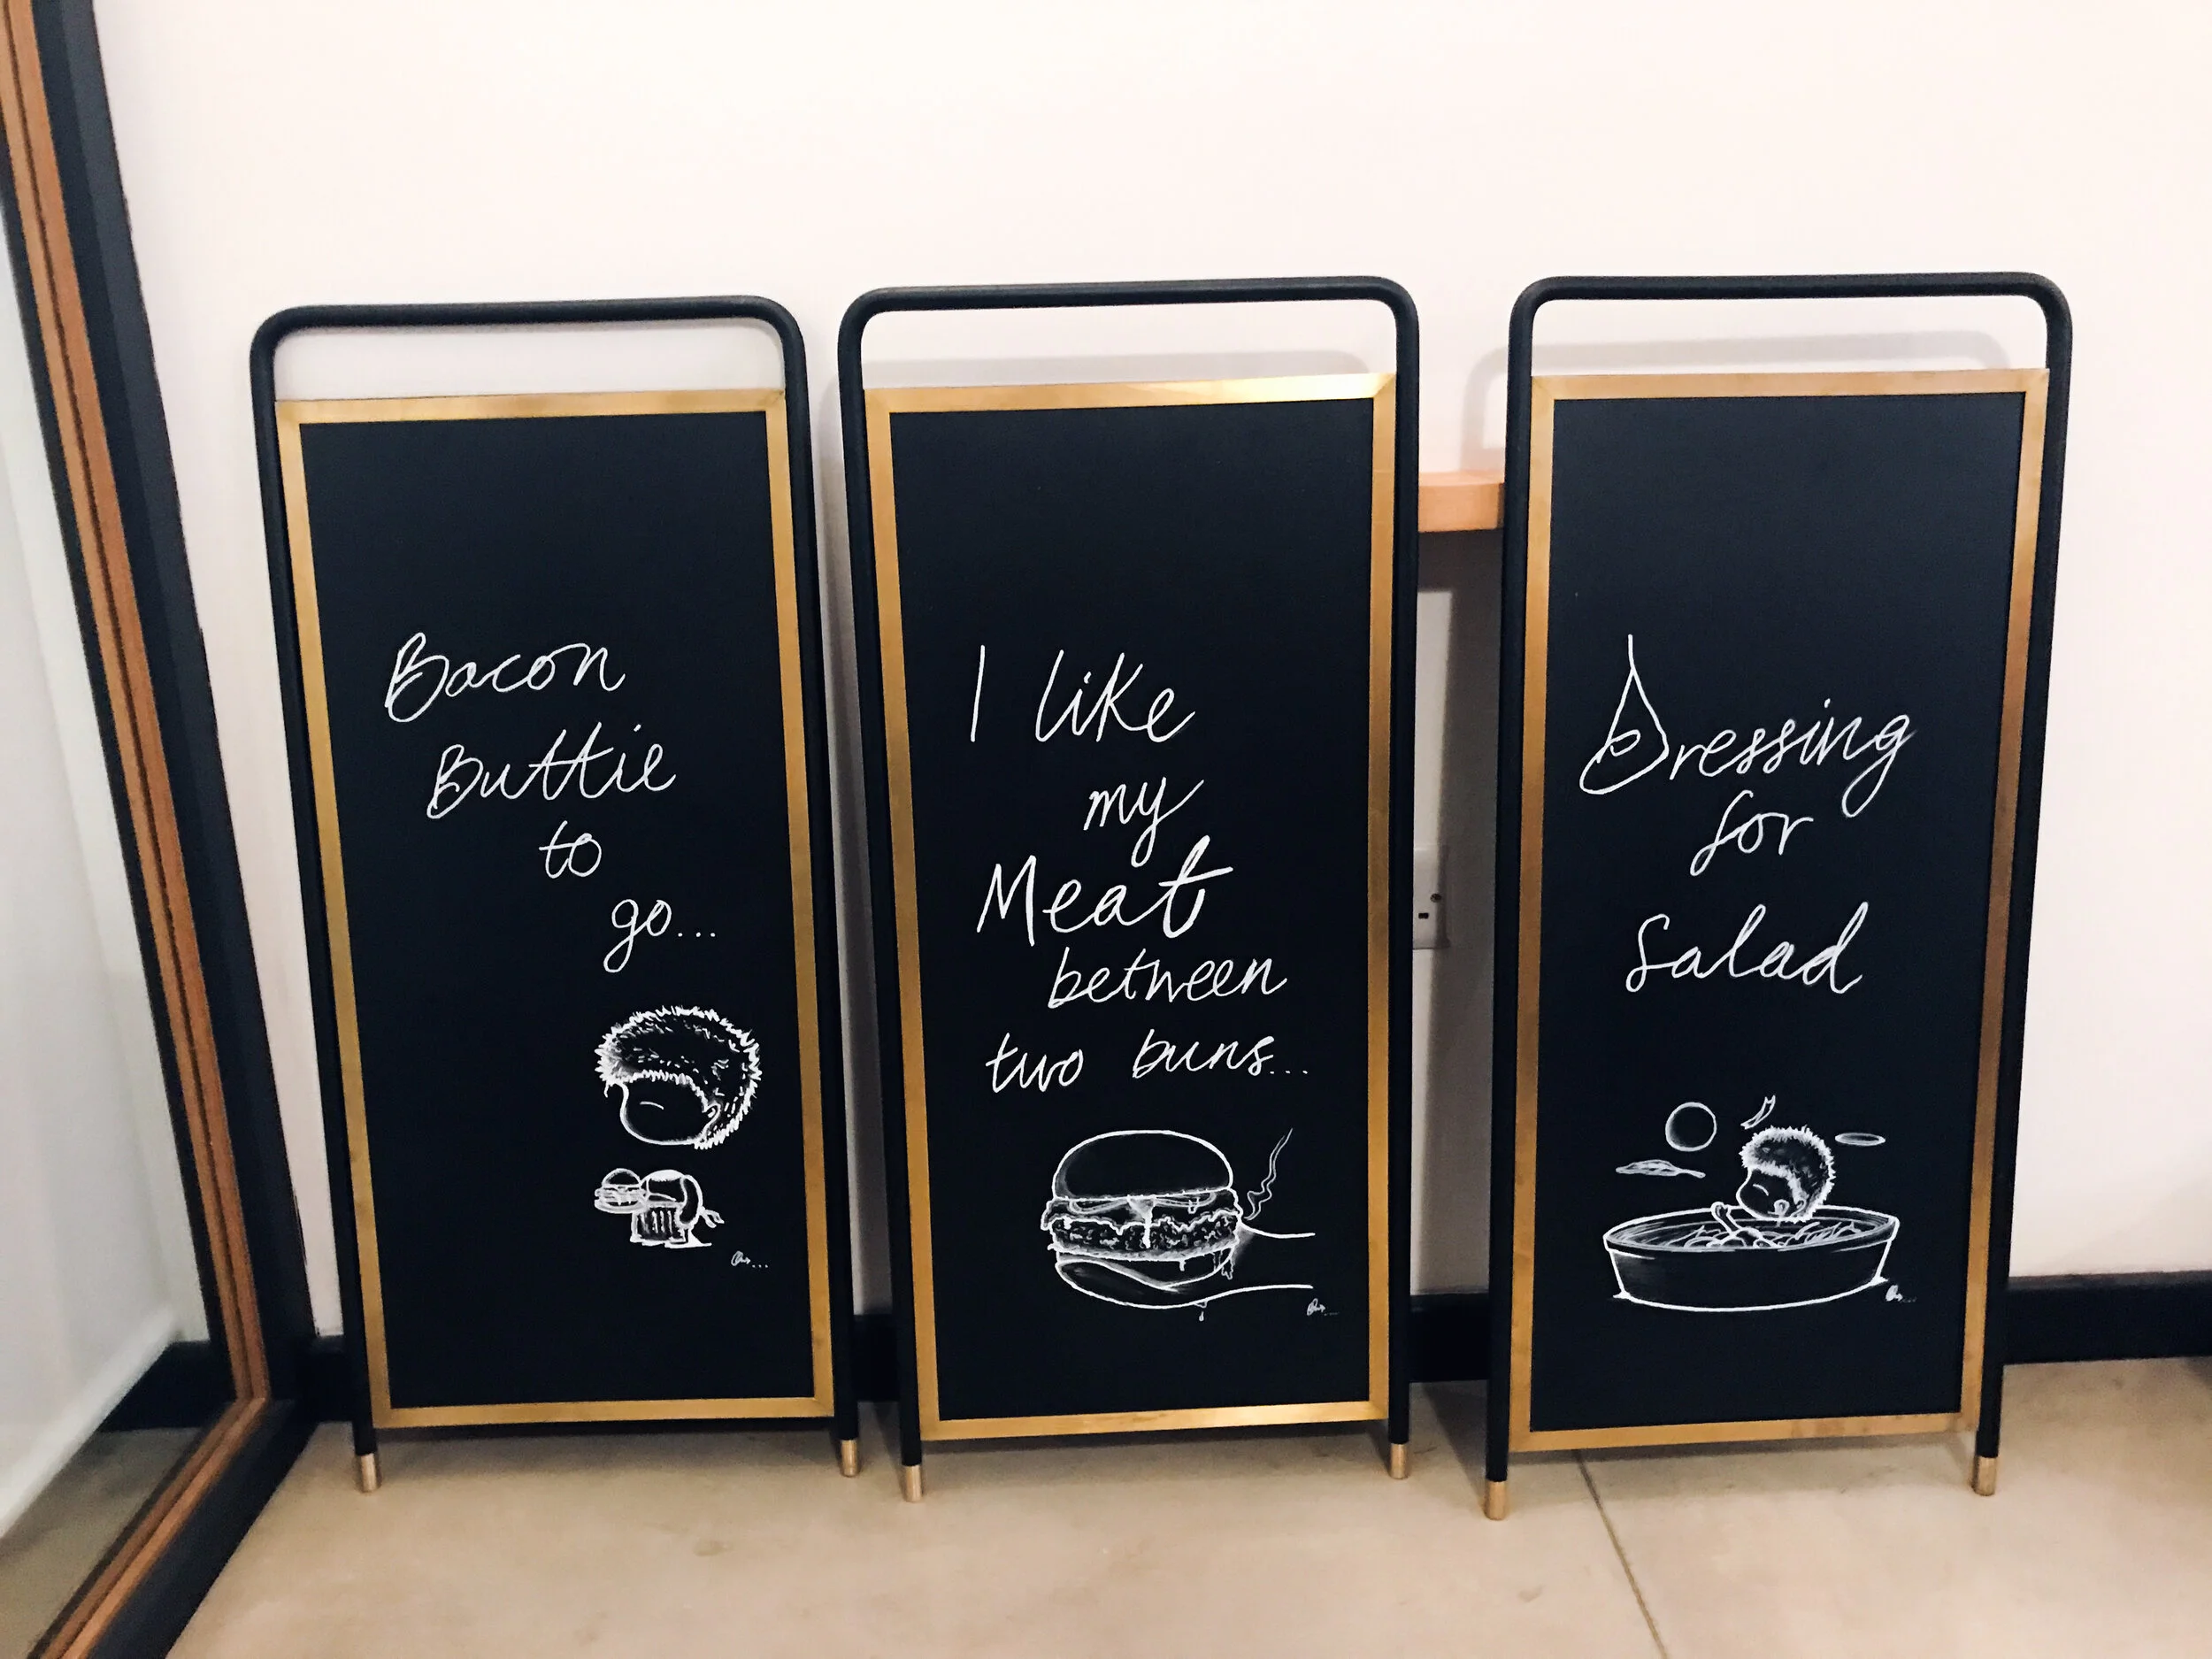 Bacon
Buttie
to
go...
I like
my
Meat
between
two buns...
Dressing
for
Salad